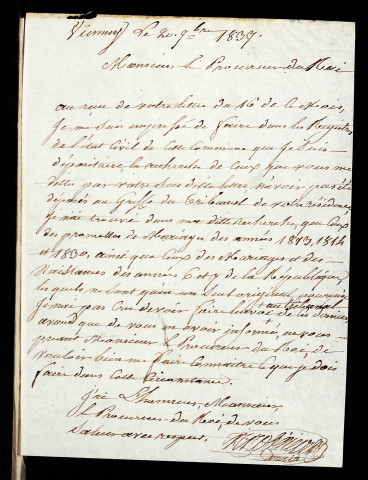 Le 20. 9bre 1837.
Monsieur le Procureur du Roi
au reçu de votre lettre du 16 de ce Mois,
Je me suis empressé de faire dans les Registres
de l'état Civil de cette Commune que je suis
dépositaire, la recherche de Ceux que vous me
dittes par votre Sus ditte lettre n'avoir pas été
déposés au Greffe du Tribunal de votre résidence
je n'ai trouvé dans mes dittes recherches, que Ceux
des promesses de Mariages des années 1813, 1814
et 1830, ainsi que Ceux des Mariages et des
Naissances des années 6 et 7 de la République,
les quels ne sont qu'en un Seul original, pourquoi
je n'ai pas Cru devoir faire l'envoi de ces derniers
avant que de vous en avoir informé, je vous
prie Monsieur le Procureur du Roi, de
vouloir bien me faire Connaitre Ce que je dois
faire dans Cette Circonstance.
J'ai L'honneur, Monsieur
le Procureur du Roi, de vous
Saluer avec respect.